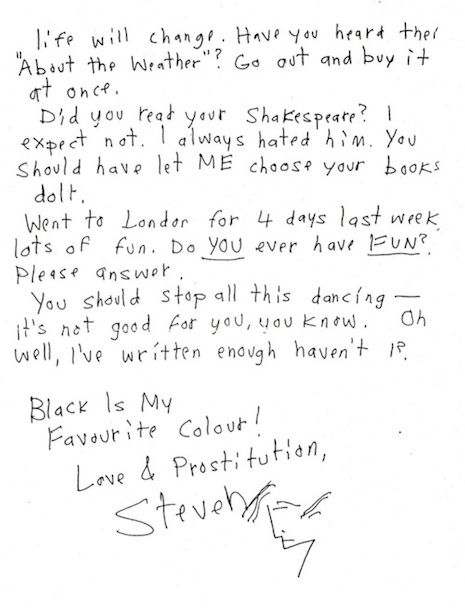 life will change. Have you heard their
"About the Weather"? Go out and buy it
at once.
Did you read your Shakespeare? I
expect not. I always hated him. You
should have let ME choose your books
dolt.
Went to London for 4 days last week,
lots of fun. Do YOU ever have FUN?
Please answer.
You should stop all this dancing —
it's not good for you, you know. Oh
well, I've written enough haven't I?
Black Is My
Favourite Colour!
Love & Prostitution,
Steven